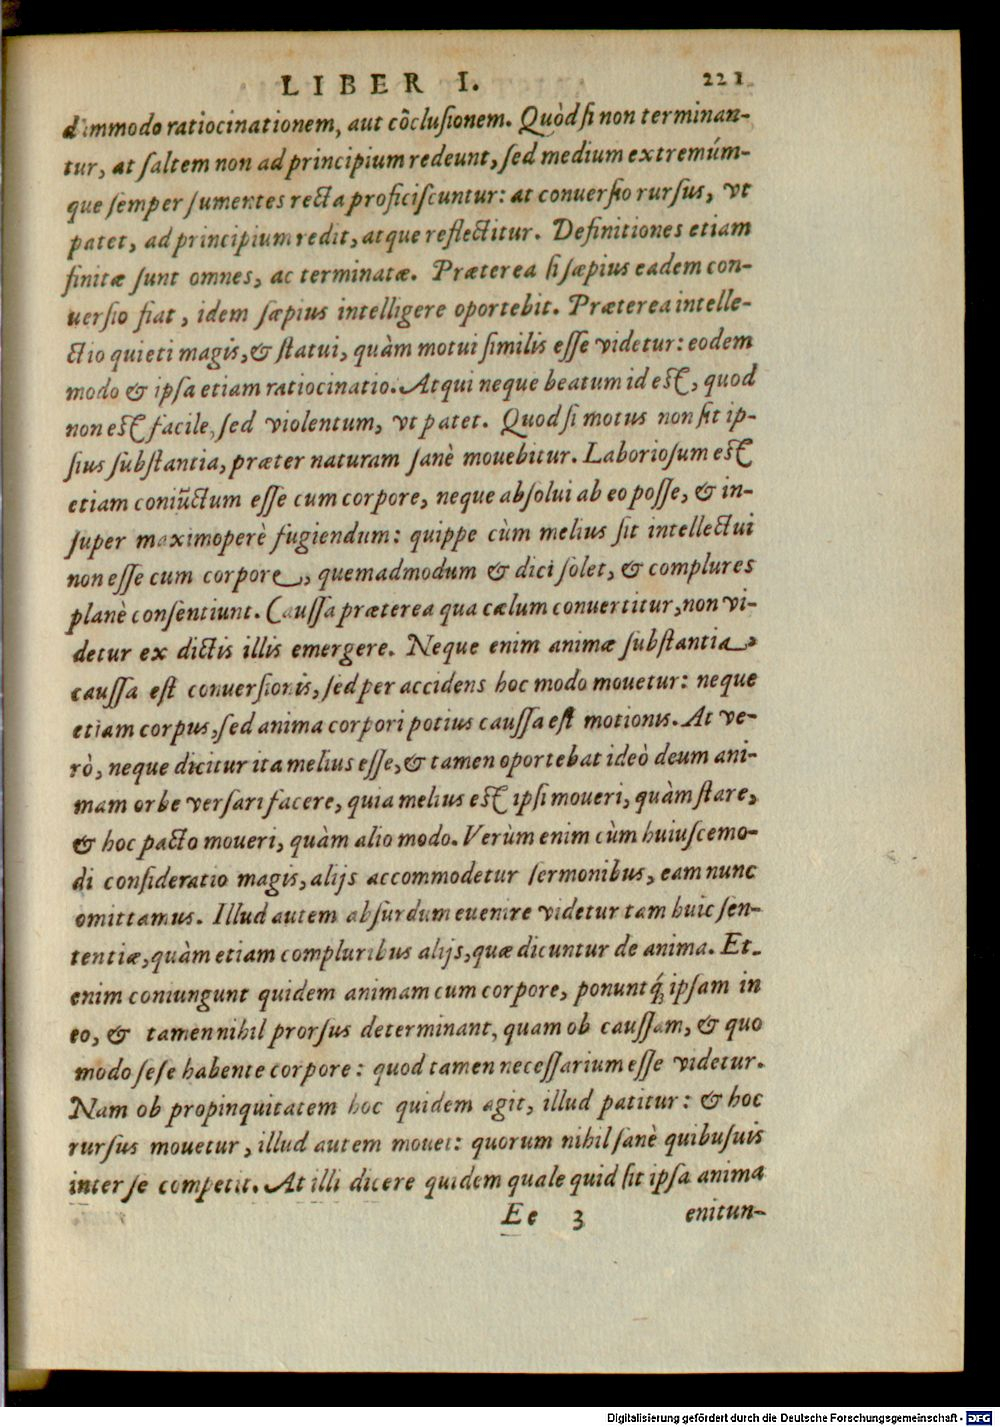 LIBER I. 221
dammodo ratiocinationem, aut cõclusionem. Quòd si non terminan-
tur, at saltem non ad principium redeunt, sed medium extremúm-
que semper sumentes recta proficiscuntur: at conuersio rursus, vt
patet, ad principium redit, atque reflectitur. Definitiones etiam
finitæ sunt omnes, ac terminatæ. Præterea si sæpius eadem con-
uersio fiat, idem sæpius intelligere oportebit. Præterea intelle-
ctio quieti magis, & statui, quàm motui similis esse videtur: eodem
modo & ipsa etiam ratiocinatio. Atqui neque beatum id est, quod
non est facile, sed violentum, vt patet. Quod si motus non sit ip-
sius substantia, præter naturam sanè mouebitur. Laboriosum est
etiam coniũctum esse cum corpore, neque absolui ab eo posse, & in-
super maximoperè fugiendum: quippe cùm melius sit intellectui
non esse cum corpore, quemadmodum & dici solet, & complures
planè consentiunt. Caussa præterea qua cælum conuertitur, non vi-
detur ex dictis illis emergere. Neque enim animæ substantia
caussa est conuersionis, sed per accidens hoc modo mouetur: neque
etiam corpus, sed anima corpori potius caussa est motionis. At ve-
rò, neque dicitur ita melius esse, & tamen oportebat ideò deum ani-
mam orbe versari facere, quia melius est ipsi moueri, quàm stare,
& hoc pacto moueri, quàm alio modo. Verùm enim cùm huiuscemo-
di consideratio magis, alijs accommodetur sermonibus, eam nunc
omittamus. Illud autem absurdum euenire videtur tam huic sen-
tentiæ, quàm etiam compluribus alijs, quæ dicuntur de anima. Et-
enim coniungunt quidem animam cum corpore, ponuntq́; ipsam in
eo, & tamen nihil prorsus determinant, quam ob caussam, & quo
modo sese habente corpore: quod tamen necessarium esse videtur.
Nam ob propinquitatem hoc quidem agit, illud patitur: & hoc
rursus mouetur, illud autem mouet: quorum nihil sanè quibusuis
inter se competit. At illi dicere quidem quale quid sit ipsa anima
Ee 3 enitun-
Digitalisierung gefördert durch die Deutsche Forschungsgemeinschaft - DFG